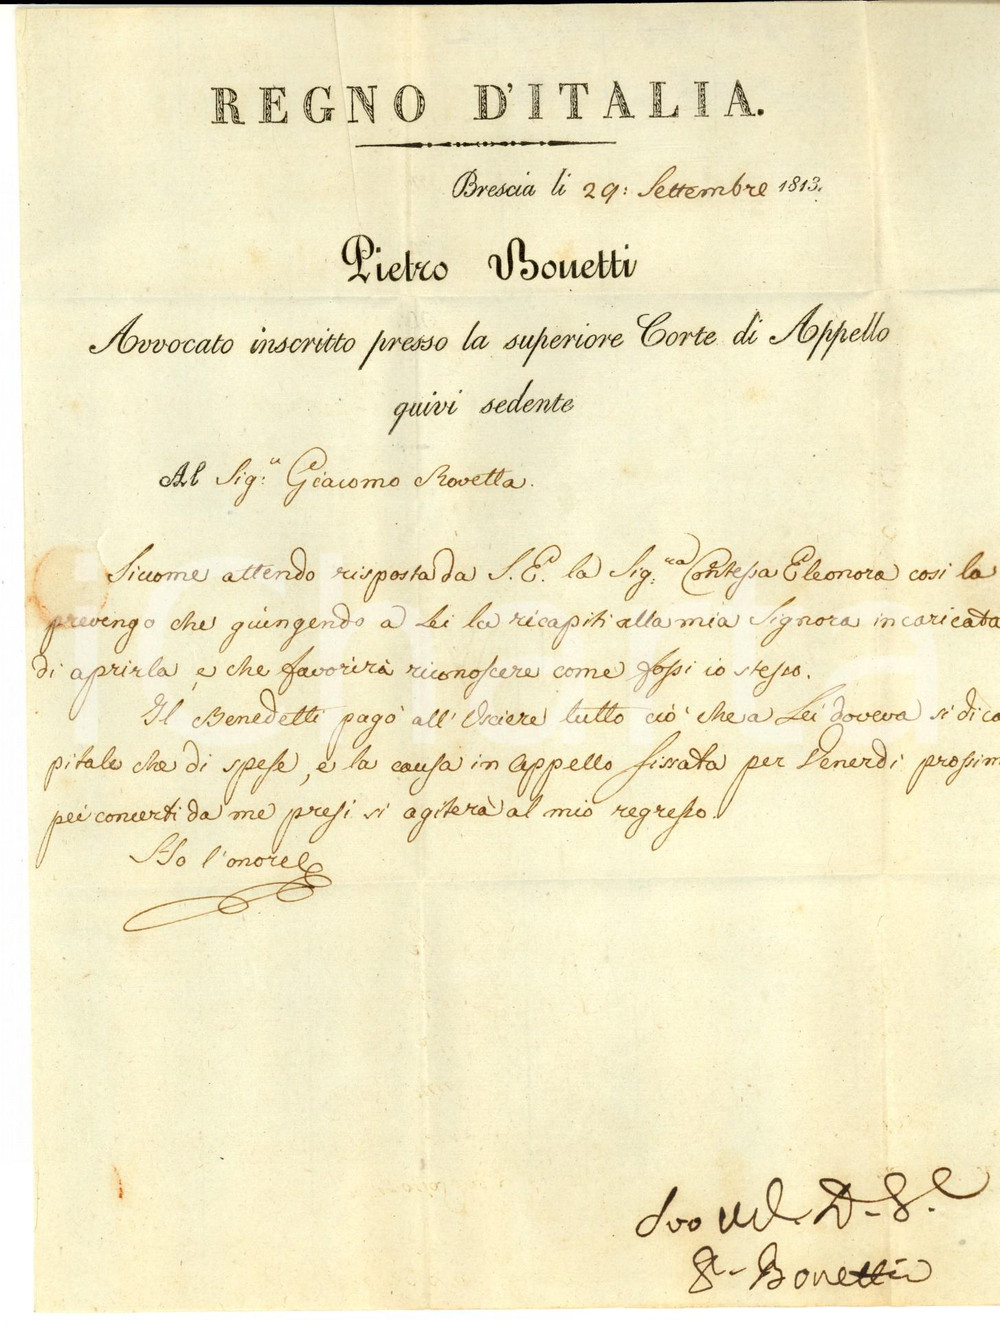 REGNO D'ITALIA.
Brescia li 29: Settembre 1813.
Pietro Bonetti
Avvocato inscritto presso la superiore Corte di Appello
quivi sedente
Al Sig.r Giacomo Rovetta.
Siccome attendo risposta da S. E. la Sig.ra Contessa Eleonora così la
prevengo che giungendo a Lei la ricapiti alla mia Signora incaricata
di aprirla e che favorirà riconoscere come fossi io stesso.
Il Benedetti pagò all'Usciere tutto ciò che a Lei doveva sì di ca
pitale che di spese, e la causa in appello fissata per Venerdì prossim
pei concerti da me presi si agiterà al mio regresso.
Ho l'onore
Suo D. S.
Bonetti